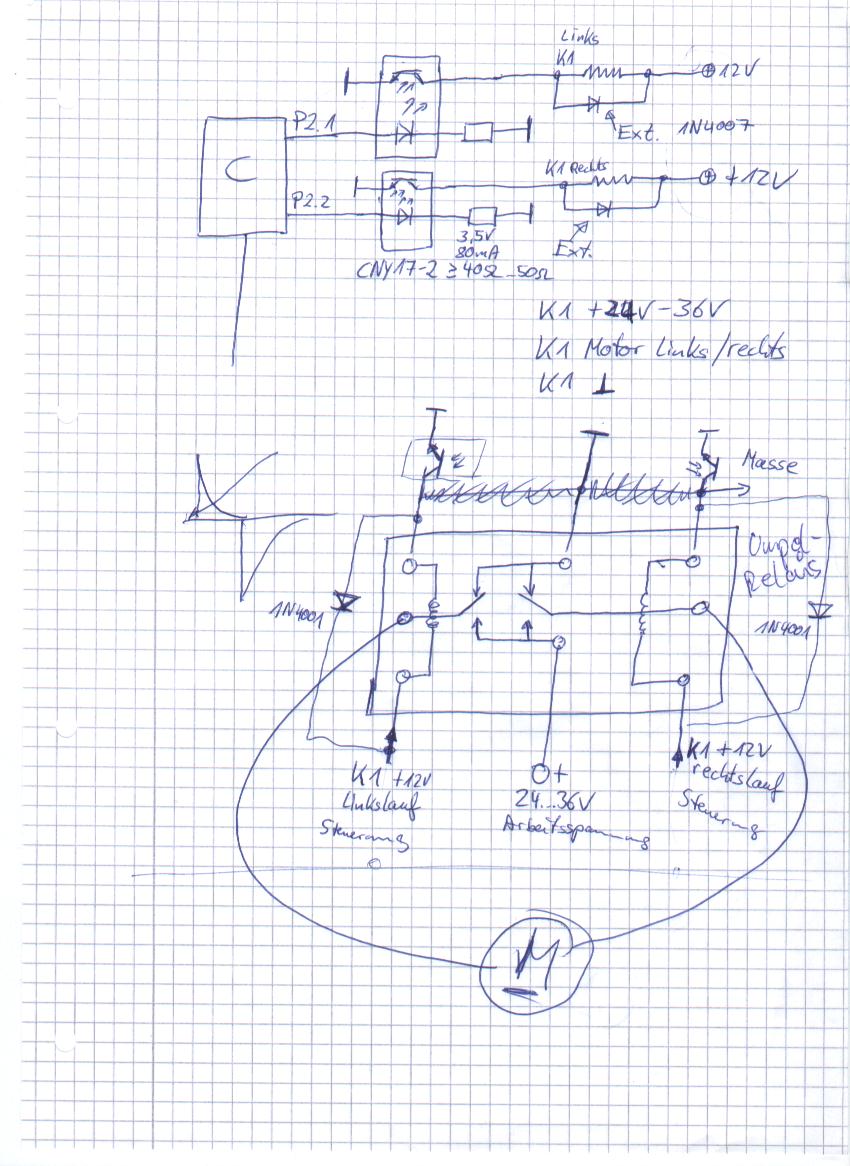 Links
K1
⊕12V
P2.1
Ext. 1N4007
C
K1 Rechts
⊕ +12V
P2.2
3,5V
80mA
Ext.
CNY17-2 ≥40Ω-50Ω
K1 +24V-36V
K1 Motor Links/rechts
K1 ⊥
Masse
Relais
1N4001
1N4001
K1 +12V
Linkslauf
Steuerung
+
24...36V
Arbeitsspannung
K1 +12V
rechtslauf
Steuerung
M